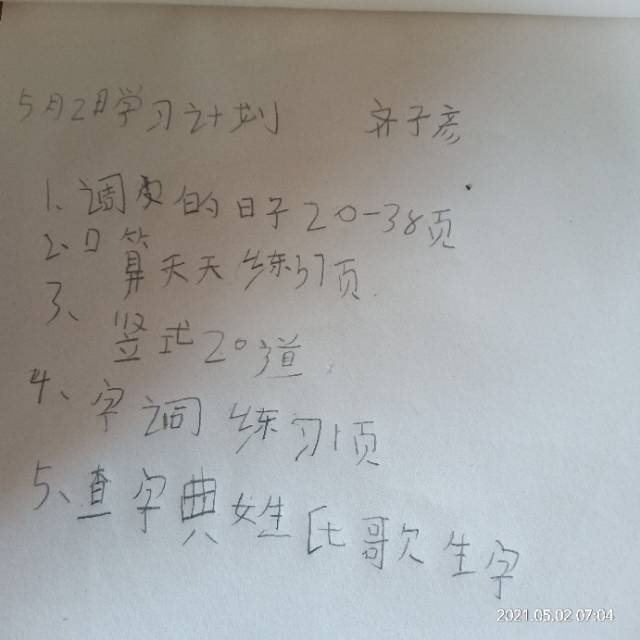 5月2日学习计划 齐子彦
1、调皮的日子20-38页
2、口算天天练37页
3、竖式20道
4、字词练习1页
5、查字典姓氏歌生字
2021.05.02 07:04